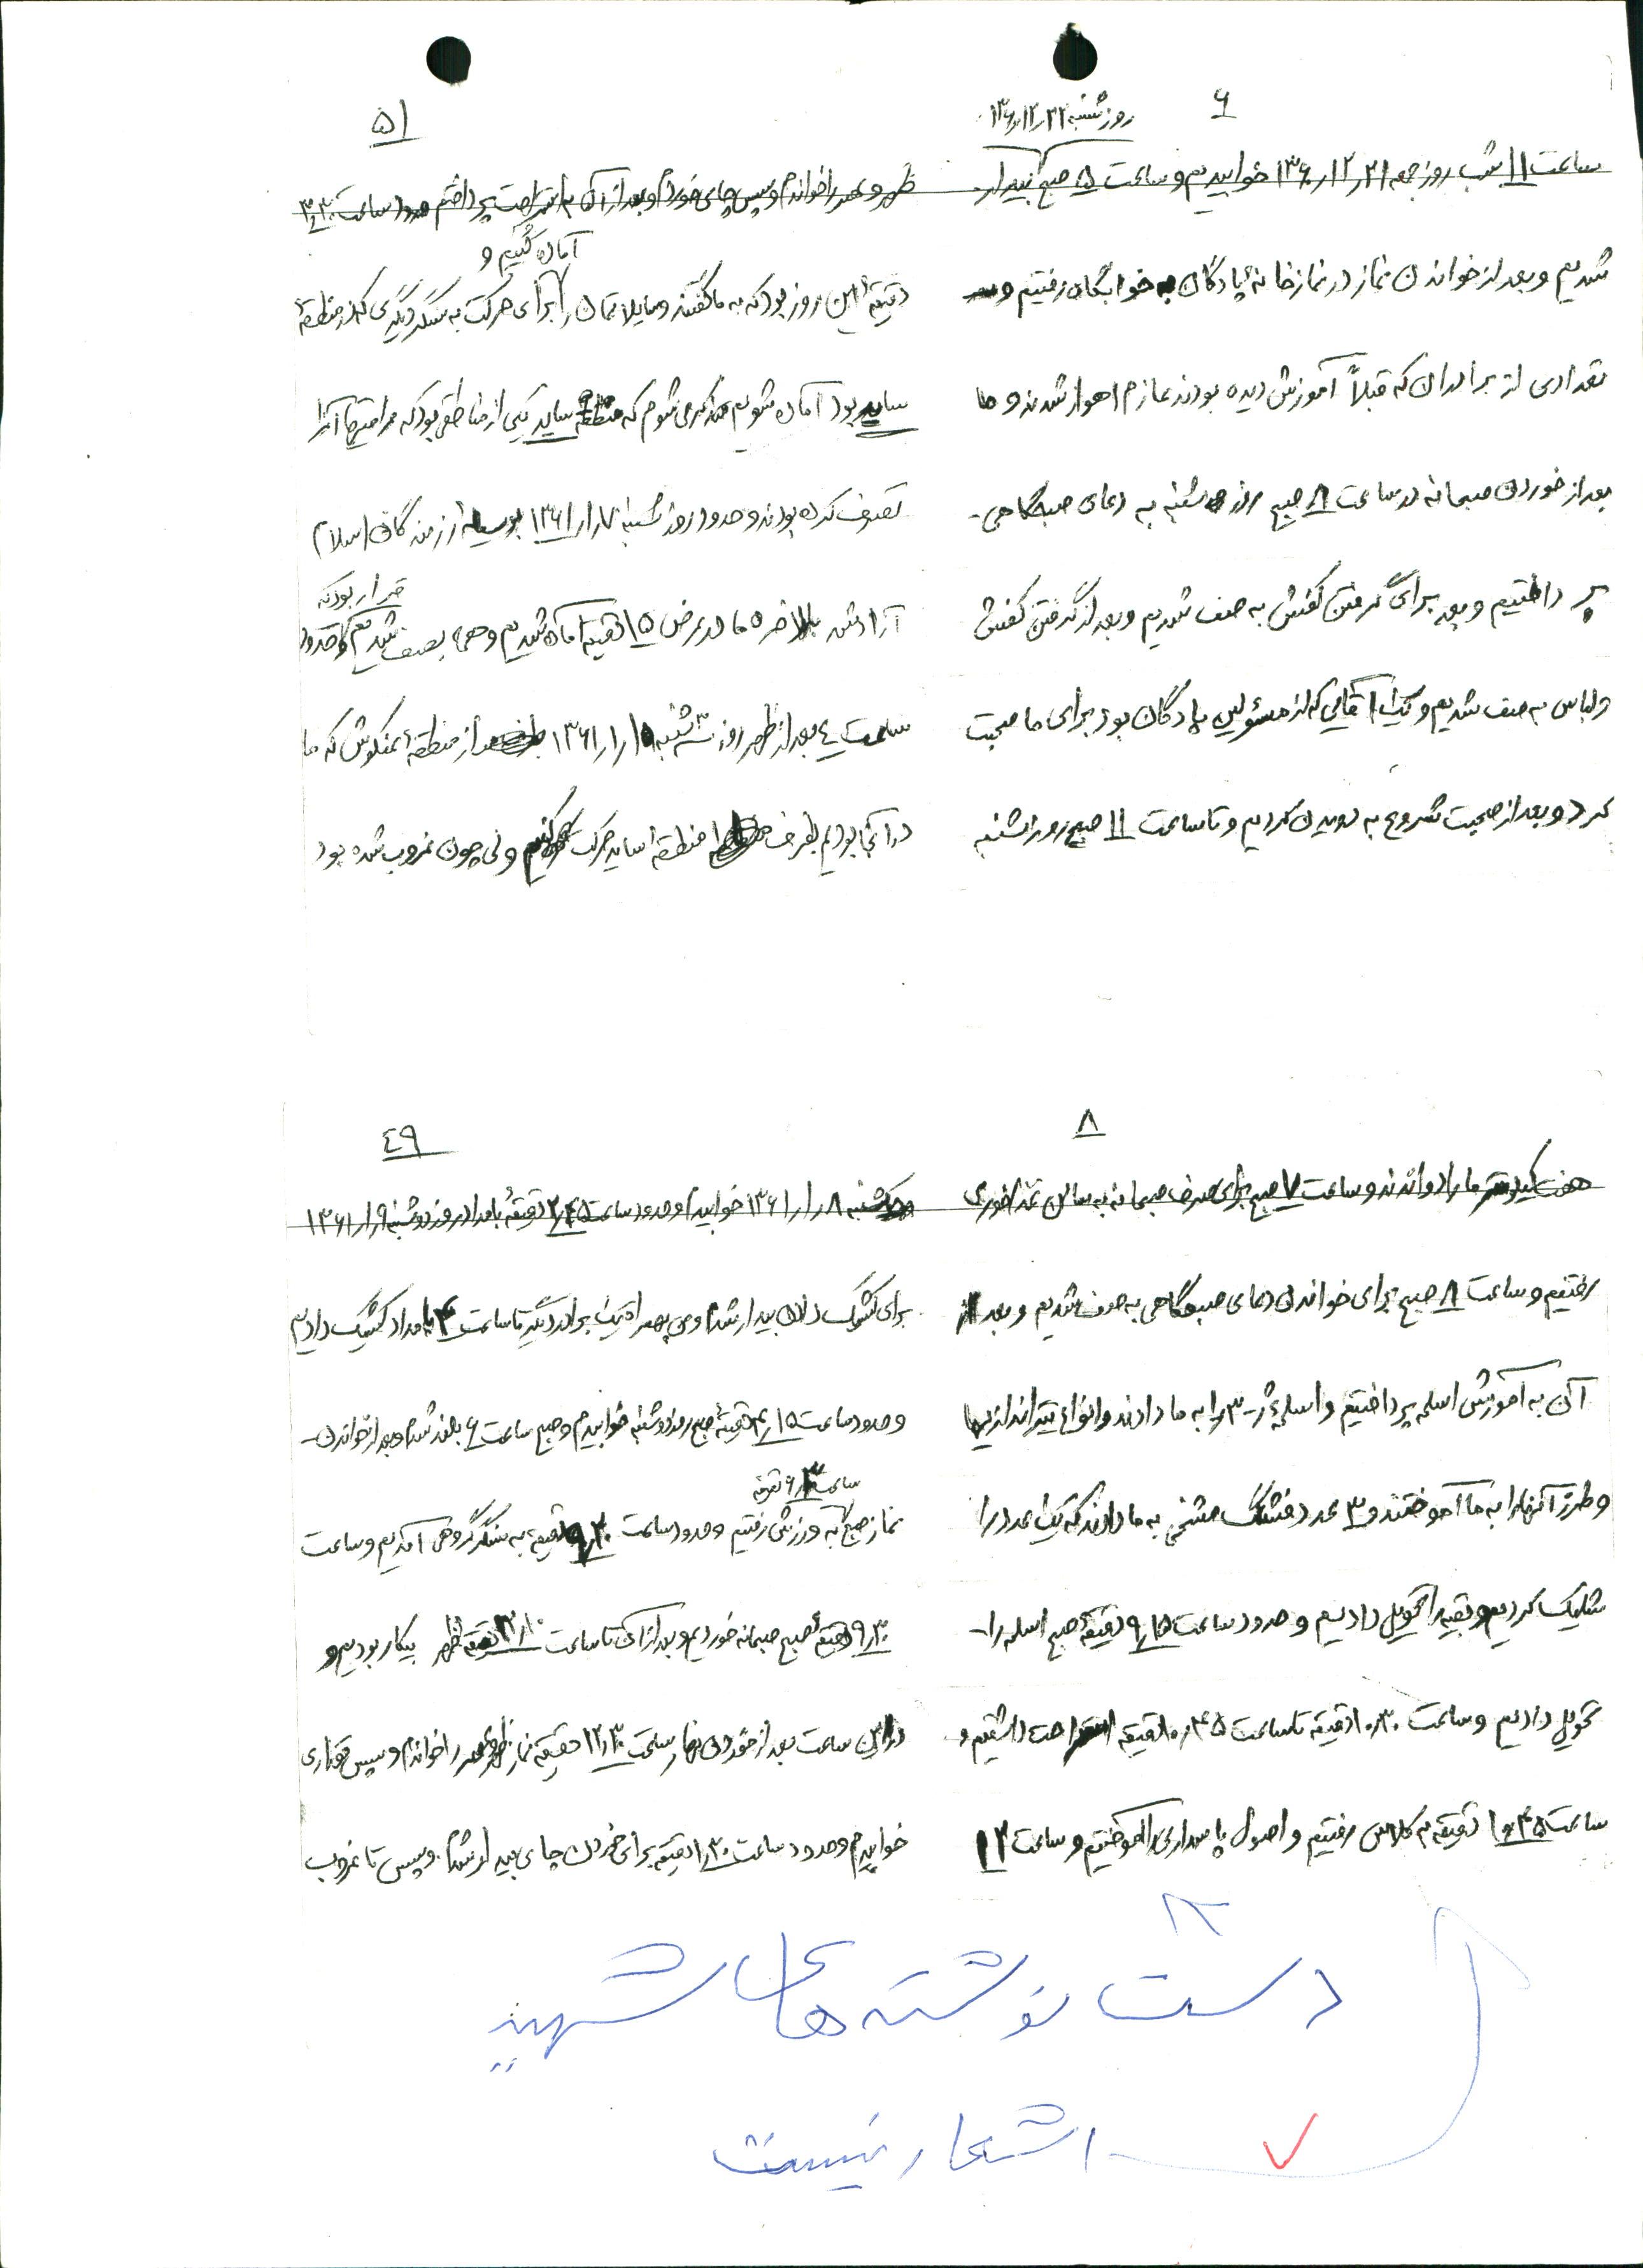 ۶
روز شنبه ۱۳۶۰/۱۲/۲۲
ساعت ۱۱ شب روز جمعه ۱۳۶۰/۱۲/۲۱ خوابیدیم و ساعت ۵ صبح بیدار
شدیم و بعد از خواندن نماز در نمازخانهٔ پادگان به خوابگاه رفتیم و
تعدادی از برادران که قبلاً آموزش دیده بودند عازم اهواز شدند و ما
بعد از خوردن صبحانه در ساعت ۸ صبح روز شنبه به دعای صبحگاهی
پرداختیم و بعد برای گرفتن کفش به صف شدیم و بعد از گرفتن کفش
و لباس به صف شدیم و یک آقایی که از مسئولین پادگان بود برای ما صحبت
کرد و بعد از صحبت شروع به دویدن کردیم و تا ساعت ۱۱ صبح روز شنبه
۵۱
ظهر و عصر را خواندم و سپس چای خوردم و بعد از آن به استراحت پرداختم حدود ساعت ۳،۳۰
آماده کنیم و
دقیقهٔ این روز بود که به ما گفتند وسایلاتمان را برای حرکت به سنگر دیگری که در منطقهٔ
ساید بود آماده شویم متذکر می شوم که منطقه ساید یکی از مناطقی بود که عراقیها آنرا
تصرف کرده بودند و حدود روز شنبه ۱۳۶۱/۱/ بوسیله رزمندگان اسلام
قرار بود که
آزاد شد بالاخره ما در عرض ۱۵ دقیقه آماده شدیم و همه بصف شدیم حدود
ساعت ٤ بعد از ظهر روز ۳ شنبه ۱۳۶۱/۱/۱۰ از منطقهٔ که ما
در آنجا بودیم بطرف منطقهٔ ساید حرکت کنیم ولی چون غروب شده بود
۸
هفت کیلومتر ما را دواندند و ساعت ۷ صبح برای صرف صبحانه به سالن غذاخوری
رفتیم و ساعت ۸ صبح برای خواندن دعای صبحگاهی به صف شدیم و بعد از
آن به آموزش اسلحه پرداختیم و اسلحهٔ ژ-۳ را به ما دادند و انواع تیراندازیها
و طرز آنها را به ما آموختند و ۳ عدد فشنگ مشقی به ما دادند که یک عدد را
شلیک کردیم و بقیه را تحویل دادیم و حدود ساعت ۹،۱۵ دقیقهٔ صبح اسلحه را
تحویل دادیم و ساعت ۱۰،۳۰ دقیقه تا ساعت ۱۰،۴۵ دقیقه استراحت داشتیم و
ساعت ۱۰،۴۵ دقیقه به کلاس رفتیم و اصول پاسداری را آموختیم و ساعت ۱۲
٤۹
یکشنبه ۱۳۶۱/۱/۸ خوابیدم و حدود ساعت ۲،۴۵ دقیقهٔ بامداد روز دوشنبه ۱۳۶۱/۱/۹
برای کشیک دادن بیدار شدم و من بهمراه یک برادر دیگر تا ساعت ۴ بامداد کشیک دادیم
و حدود ساعت ۴،۱۵ دقیقهٔ صبح روز دوشنبه خوابیدم و صبح ساعت ۶ بلند شدم و بعد از خواندن
نماز صبح به ورزش رفتیم و حدود ساعت ۹،۳۰ دقیقه به سنگر گروهی آمدیم و ساعت
۹،۳۰ دقیقهٔ صبح صبحانه خوردیم و بعد از آن تا ساعت ۱۲،۱۰ دقیقه ظهر بیکار بودیم و
در این ساعت بعد از خوردن نهار ساعت ۱۲،۳۰ دقیقه نماز ظهر و عصر را خواندم و سپس مقداری
خوابیدم و حدود ساعت ۱،۳۰ دقیقه برای خوردن چای بیدار شدم و سپس تا غروب
دست نوشته های شهید
اشعار نیست